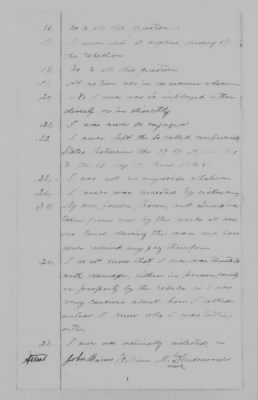 16. No to all this question
17. I never did at anytime during the
the rebellion
18. No to all this question
19. At no time nor in no manner whatever
20. No I never was so employed either
directly or indirectly
21. I was never so engaged
22 I never left the so called confederate
States between the 19 of April
to the
23. I was not in any wise whatever
24. I never was arrested by either
25. My corn fodder bacon and
taken from me by the rebels at various
times during the war and have
never received any pay therefor
26. I do not know that I ever was threatened
with damage either in person family
or property by the rebels as I was
very cautious about how I talked
unless I knew who I was talking
with
27. I never was materially molested
Attest John Burns William Henderson
mark